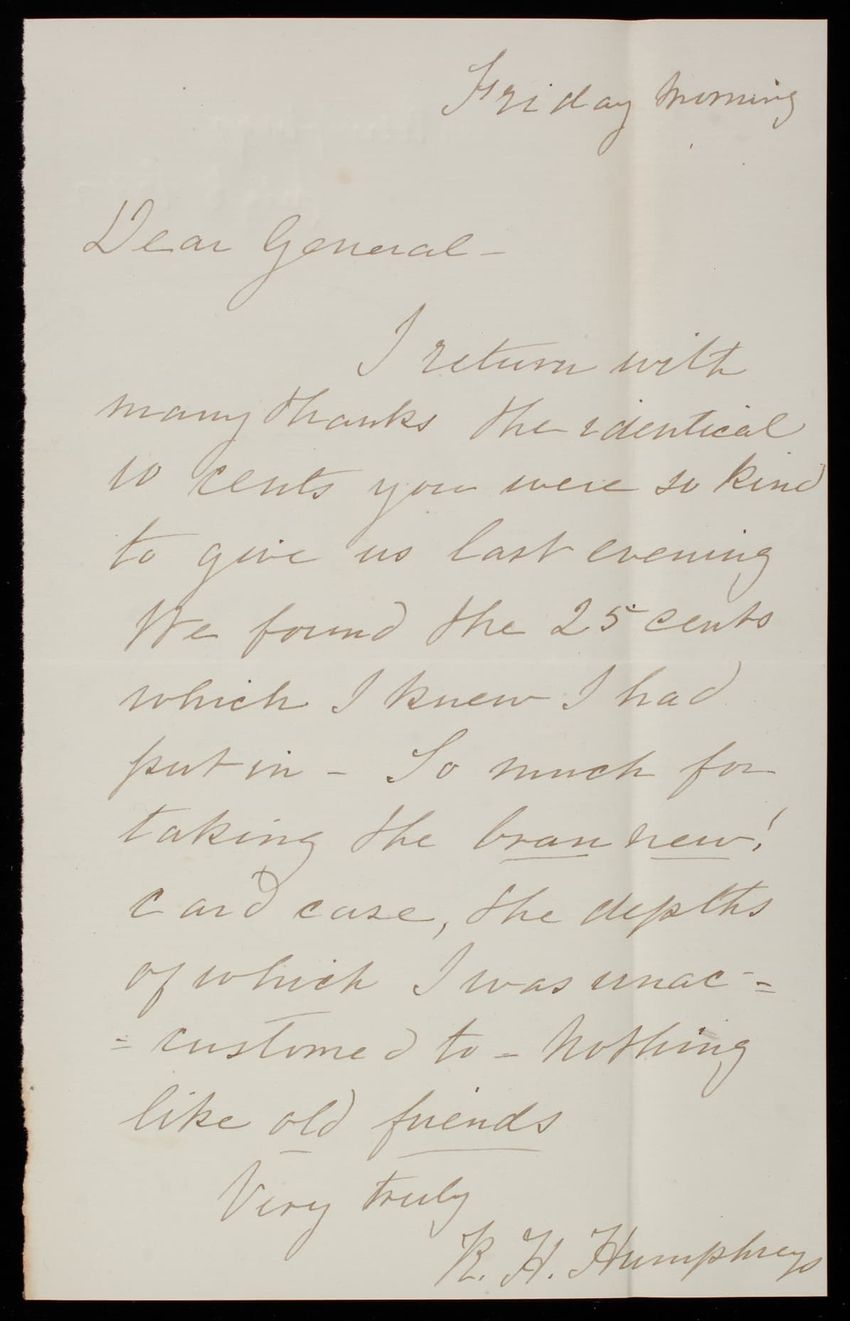 Friday Morning
Dear General –
I return with
many thanks the identical
10 cents you were so kind
to give us last evening
We found the 25 cents
which I knew I had
put in – So much for
taking the bran new!
card case, the depths
of which I was unac =
= customed to – Nothing
like old friends
Very truly
R. H. Humphreys